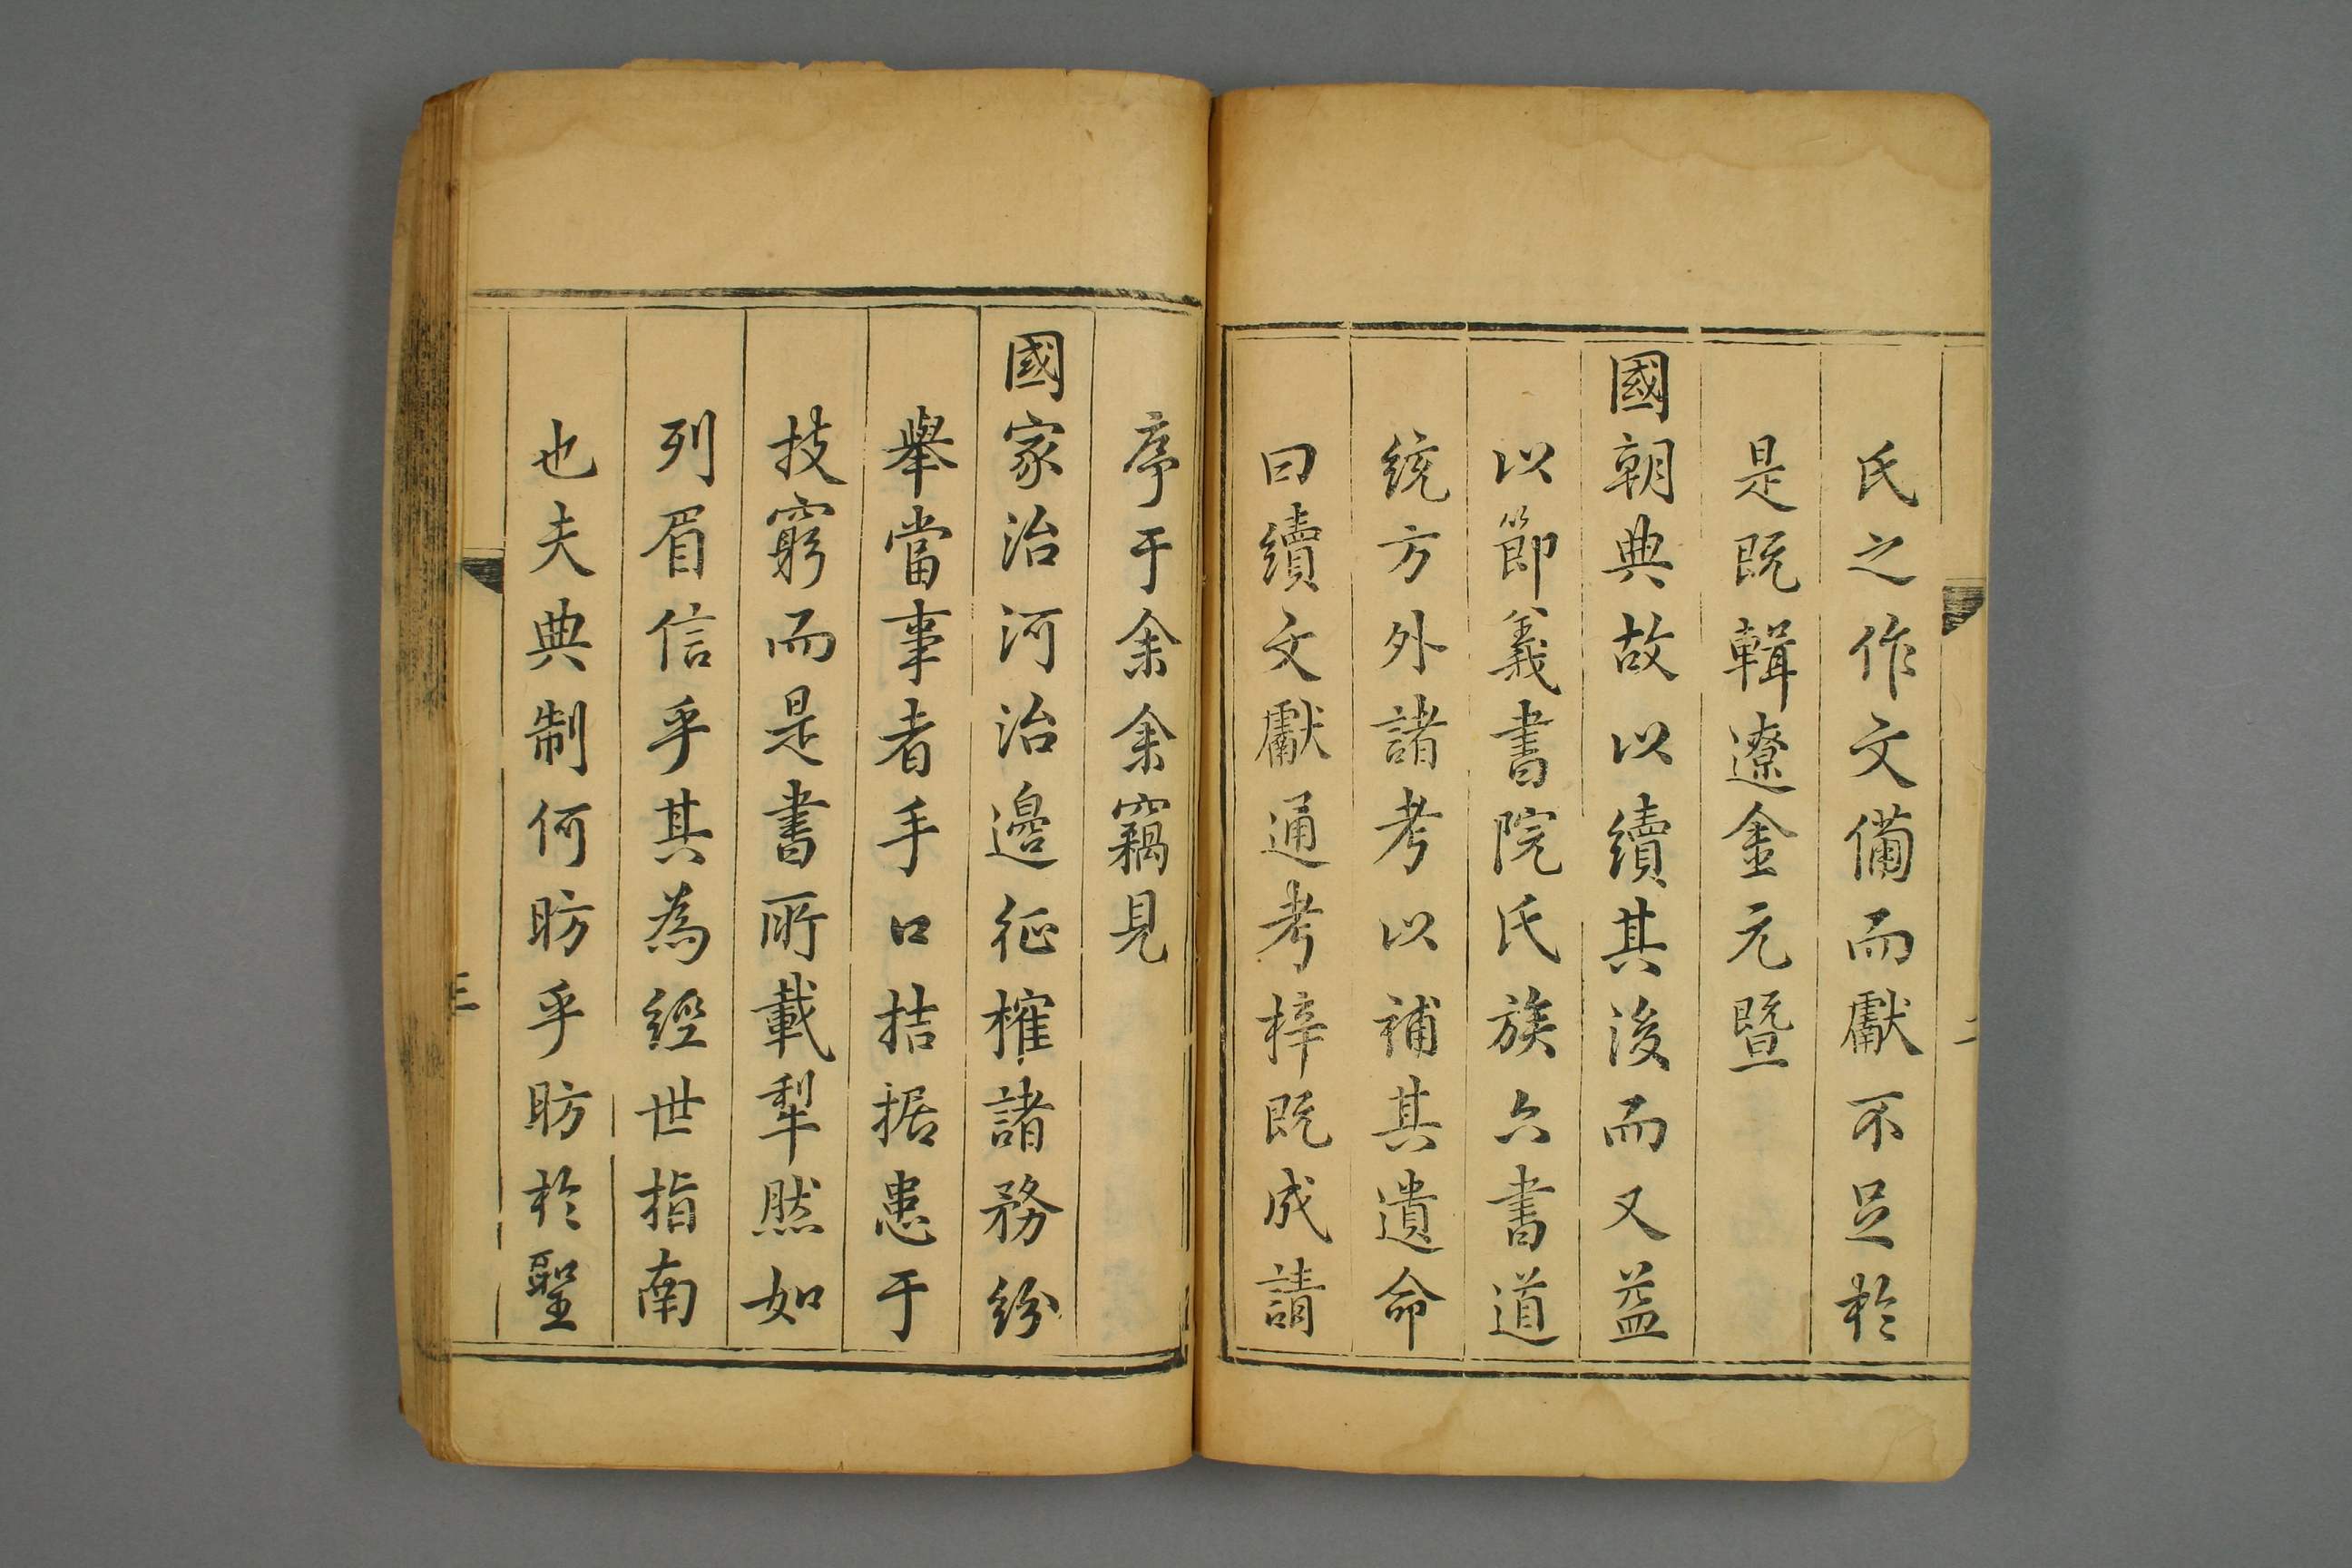 氏之作文備而獻不足於
是既輯遼金元暨
國朝典故以續其後而又益
以節義書院氏族六書道
統方外諸考以補其遺命
曰續文獻通考梓既成請
二
序于余余竊見
國家治河治邊征榷諸務紛
舉當事者手口拮据患于
技窮而是書所載犁然如
列眉信乎其為經世指南
也夫典制何昉乎昉於聖
三